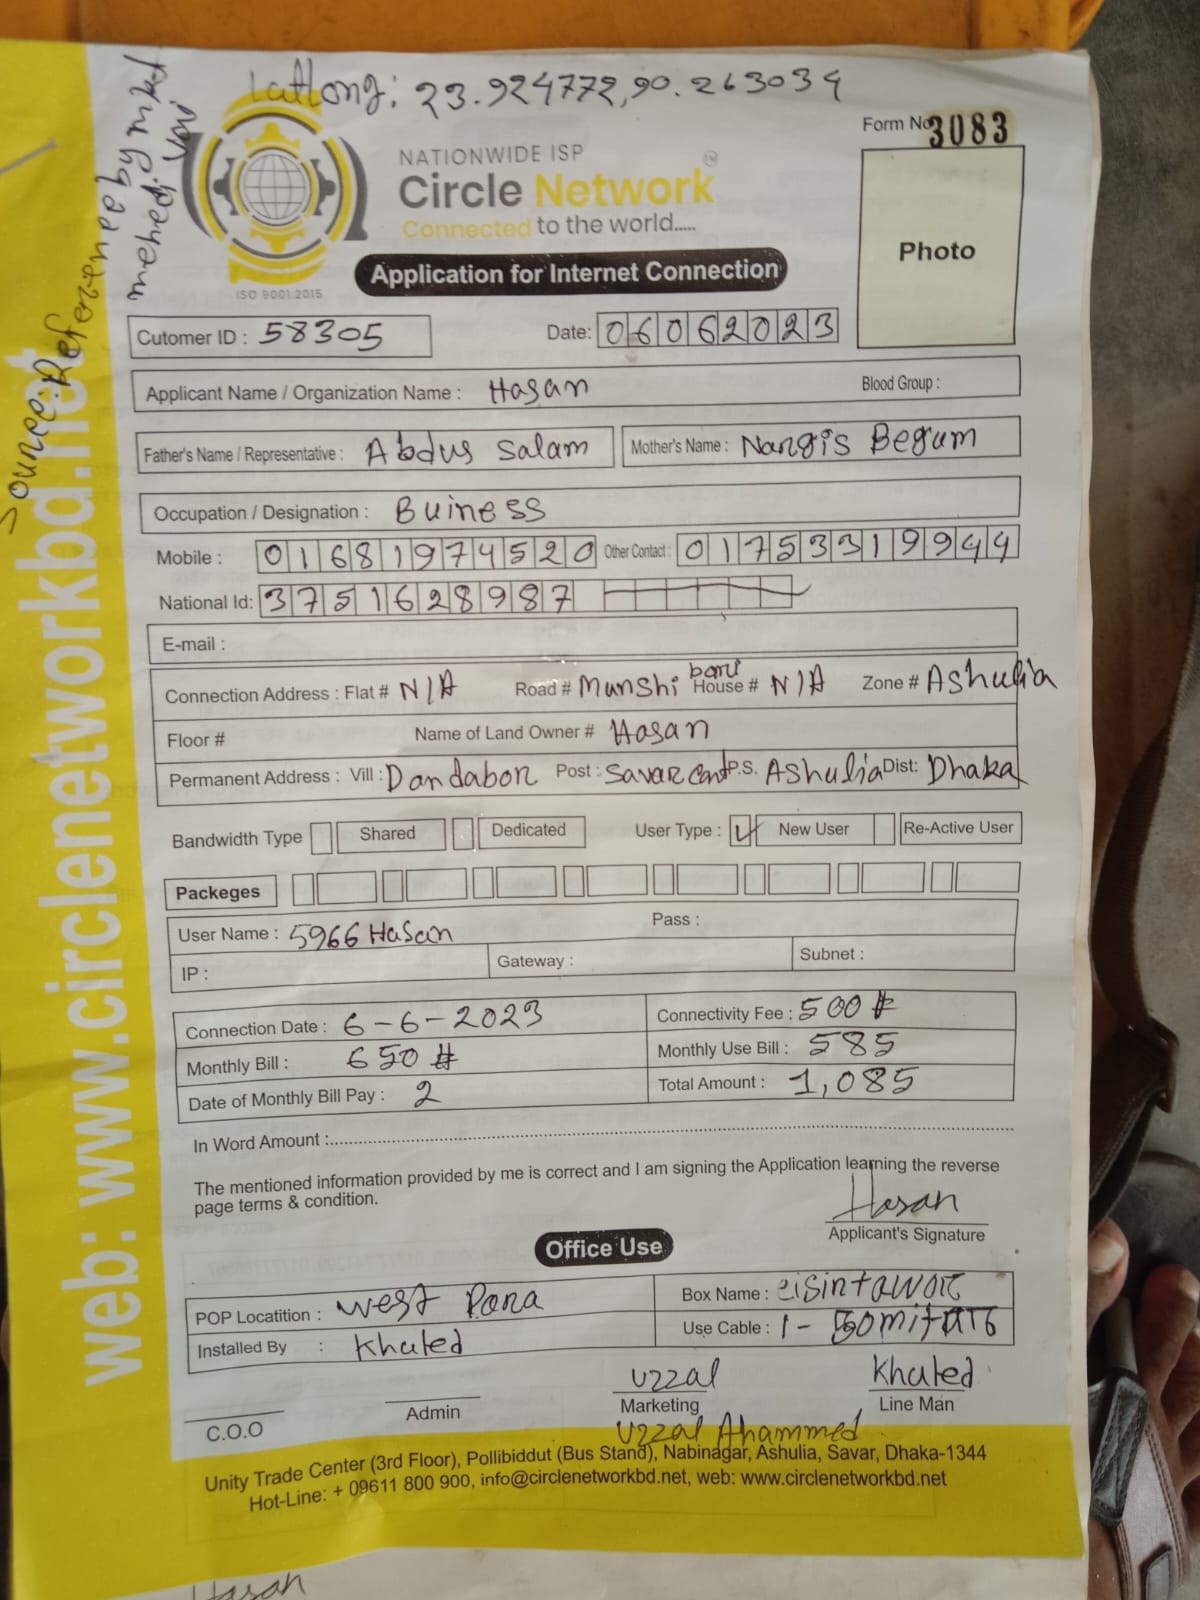 Latlong: 23.924772,90.263034
Sounce: Reference by mkt
mehedi vai
Form No 3083
NATIONWIDE ISP
Circle Network
TM
Connected to the world.....
ISO 9001:2015
Photo
Application for Internet Connection
Cutomer ID : 58305 Date: 06062023
Applicant Name / Organization Name : Hasan Blood Group :
Father's Name / Representative : Abdus Salam Mother's Name : Nargis Begum
Occupation / Designation : Buiness
Mobile : 01681974520 Other Contact : 01753319944
National Id: 3751628987
E-mail :
Connection Address : Flat # N/A Road # Munshi bari House # N/A Zone # Ashulia
Floor # Name of Land Owner # Hasan
Permanent Address : Vill : Dandabor Post : Savar Cant P.S. Ashulia Dist: Dhaka
Bandwidth Type Shared Dedicated User Type : New User Re-Active User
Packeges
User Name : 5966 Hasan Pass :
IP : Gateway : Subnet :
Connection Date : 6-6-2023 Connectivity Fee : 500 #
Monthly Bill : 650 # Monthly Use Bill : 585
Date of Monthly Bill Pay : 2 Total Amount : 1,085
In Word Amount :
The mentioned information provided by me is correct and I am signing the Application learning the reverse
page terms & condition.
Hasan
Applicant's Signature
Office Use
POP Locatition : West Para Box Name :
Installed By : Khaled Use Cable : 1-
Uzzal Khaled
C.O.O Admin Marketing Line Man
Uzzal Ahammed
Unity Trade Center (3rd Floor), Pollibiddut (Bus Stand), Nabinagar, Ashulia, Savar, Dhaka-1344
Hot-Line: + 09611 800 900, info@circlenetworkbd.net, web: www.circlenetworkbd.net
web: www.circlenetworkbd.net
Hasan